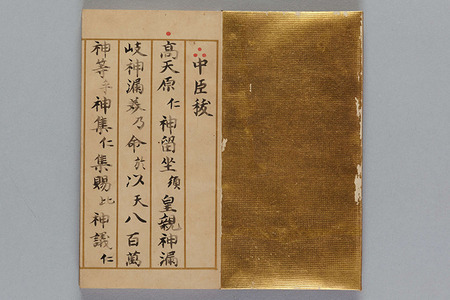 中臣祓
高天原仁神留坐須皇親神漏
岐神漏義乃命於以天八百萬
神等乎神集仁集賜比神議仁